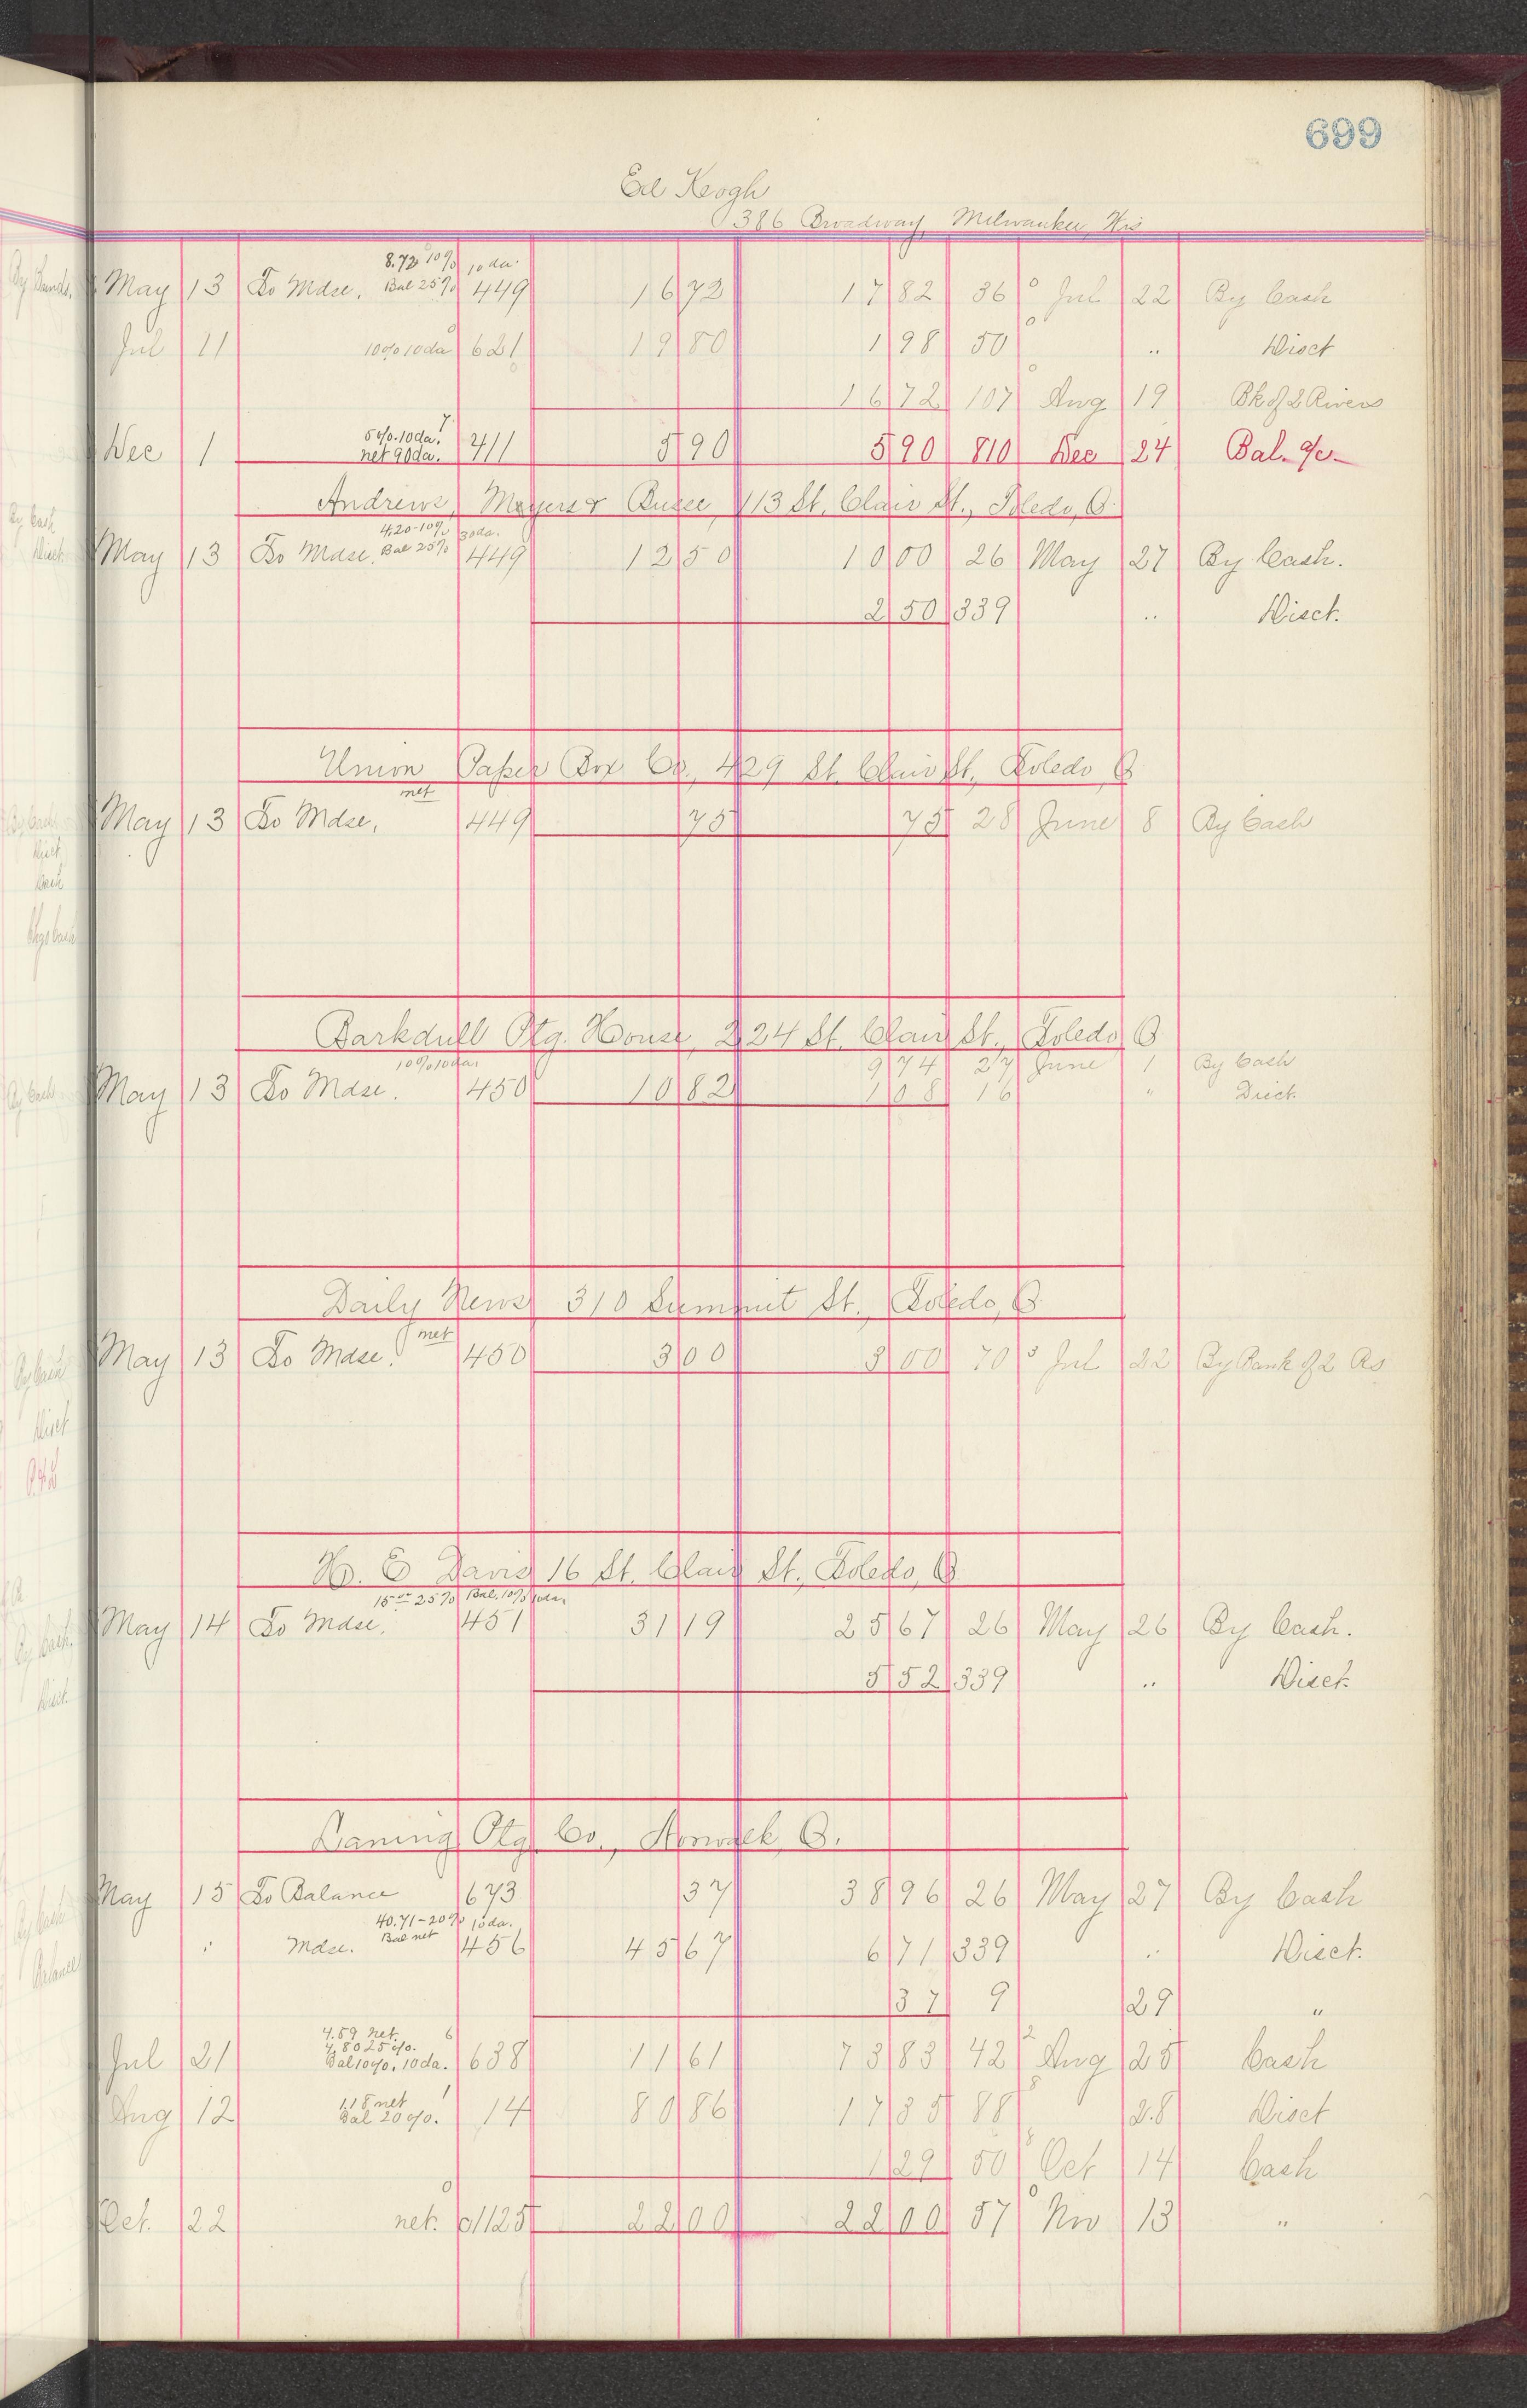 699
Ed Keogh
386 Broadway, Milwaukee, Wis
8.72 10% 10 da.
May 13 To Mdse. Bal 25% 449 16 72 17 82 36 Jul 22 By Cash
Jul 11 10% 10 da 621 19 80 1 98 50 " Disct
16 72 107 Aug 19 Bk of 2 Rivers
5%. 10 da.
Dec 1 net 90 da. 211 5 90 5 90 810 Dec 24 Bal. %
Andrews, Meyers & Busse, 113 St. Clair St., Toledo, O.
4.20-10% 30 da.
May 13 To Mdse. Bal 25% 449 12 50 10 00 26 May 27 By Cash.
2 50 339 " Disct.
Union Paper Box Co., 429 St. Clair St., Toledo O
net
May 13 To Mdse, 449 75 75 28 June 8 By Cash
Barkdull Ptg. House, 224 St. Clair St., Toledo O
10% 10 da. 9 74 27 June 1 By Cash
May 13 To Mdse. 450 10 82 1 08 16 " Disct.
Daily News 310 Summit St., Toledo, O
net
May 13 To Mdse. 450 3 00 3 00 70 Jul 22 By Bank of 2 Rs
H. E Davis 16 St. Clair St., Toledo, O
15 25% Bal. 10% 10 da.
May 14 To Mdse. 451 31 19 25 67 26 May 26 By Cash.
5 52 339 " Disct.
Laning Ptg Co., Norwalk O.
May 15 To Balance 673 37 38 96 26 May 27 By Cash
40.71-20% 10 da.
" Mdse. Bal net 456 45 67 6 71 339 " Disct.
37 9 29 "
4.59 net.
4.80 25%.
Jul 21 Bal 10%, 10 da. 638 11 61 73 83 42 Aug 25 Cash
1.18 net
Aug 12 Bal 20%. 14 80 86 17 35 88 28 Disct
1 29 50 Oct 14 Cash
Oct. 22 net. 1125 22 00 22 00 57 Nov 13 "